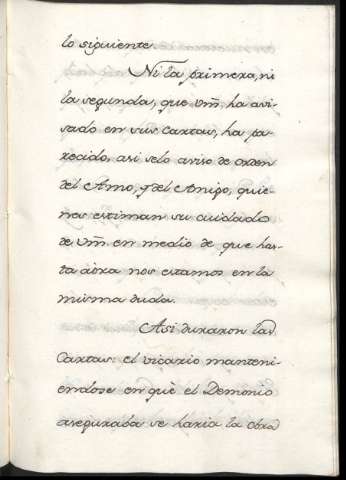 lo siguiente.
Ni la primera, ni
la segunda, que Vm. ha avi-
sado en sus Cartas, ha pa-
recido, asi selo aviso de orden
del Amo, y del Amigo, quie-
nes estiman su cuidado
de Vm. en medio de que has-
ta aora nos estamos en la
misma duda.
Asi duraron las
Cartas: el vicario manteni-
endose en què el Demonio
aseguraba se haria la obra